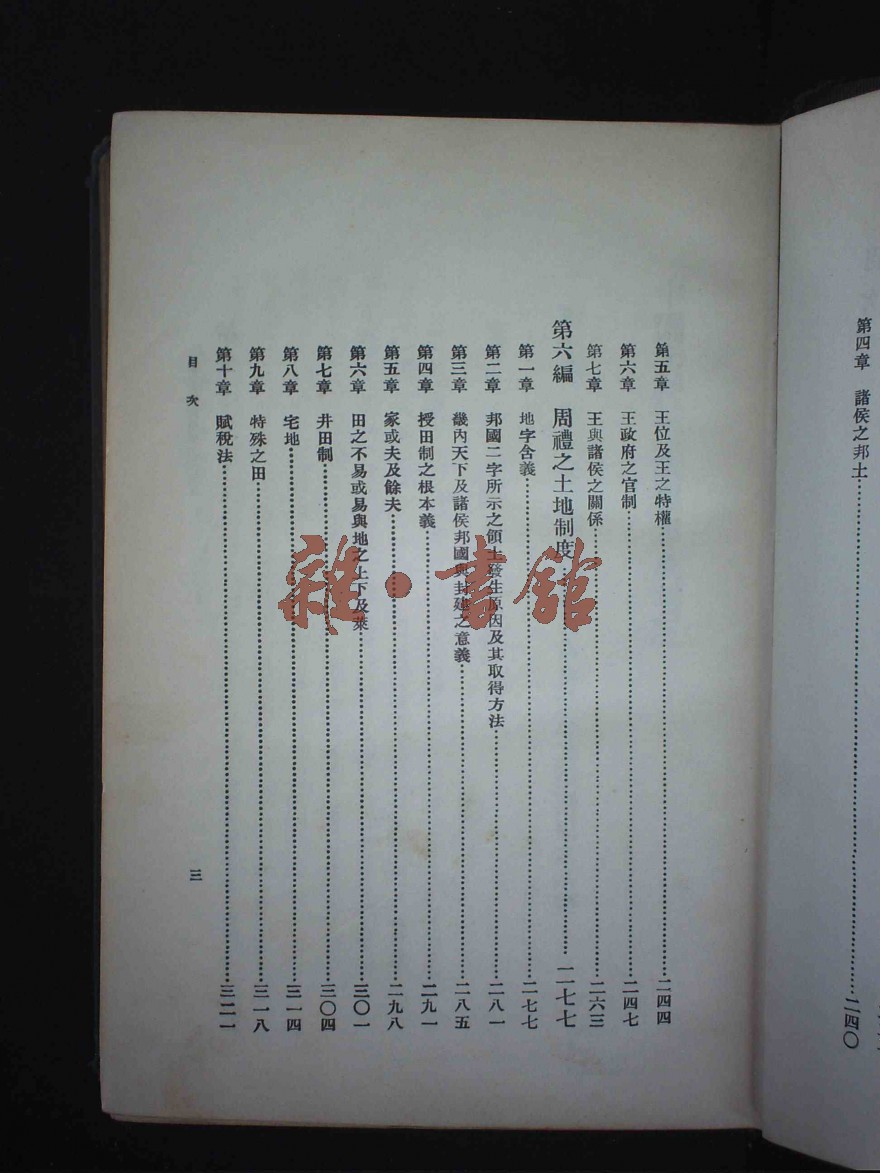 第四章　諸侯之邦土……二四〇
第五章　王位及王之特權……二四四
第六章　王政府之官制……二四七
第七章　王與諸侯之關係……二六三
第六編　周禮之土地制度……二七七
第一章　地字含義……二七七
第二章　邦國二字所示之領土發生原因及其取得方法……二八一
第三章　畿內天下及諸侯邦國與封建之意義……二八五
第四章　授田制之根本義……二九一
第五章　家或夫及餘夫……二九八
第六章　田之不易或易與地之上下及萊……三〇一
第七章　井田制……三〇四
第八章　宅地……三一四
第九章　特殊之田……三一八
第十章　賦稅法……三二一
目次
三
雜·書館